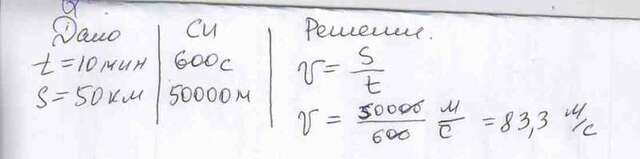 Дано СИ Решение.
t=10мин 600с v= S/t
S=50км 50000м v = 50000/600 м/с =83,3 м/с